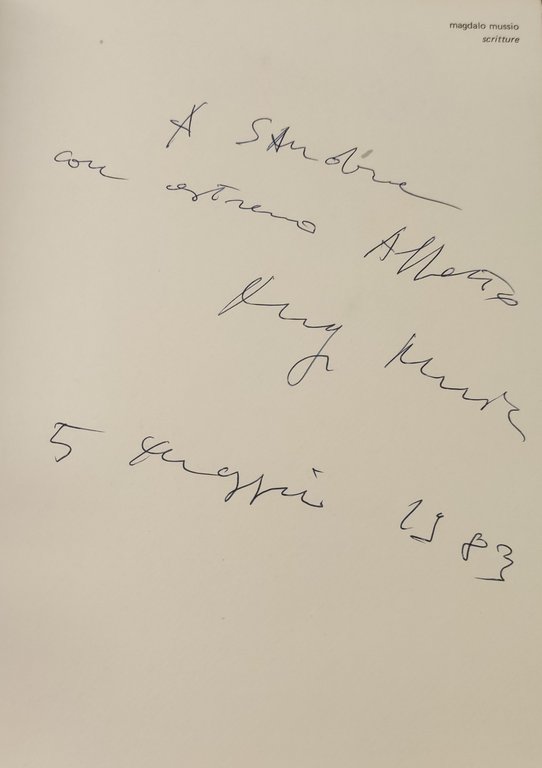 magdalo mussio
scritture
A Sandra
con estremo Affetto
Mussio
5 maggio 1983